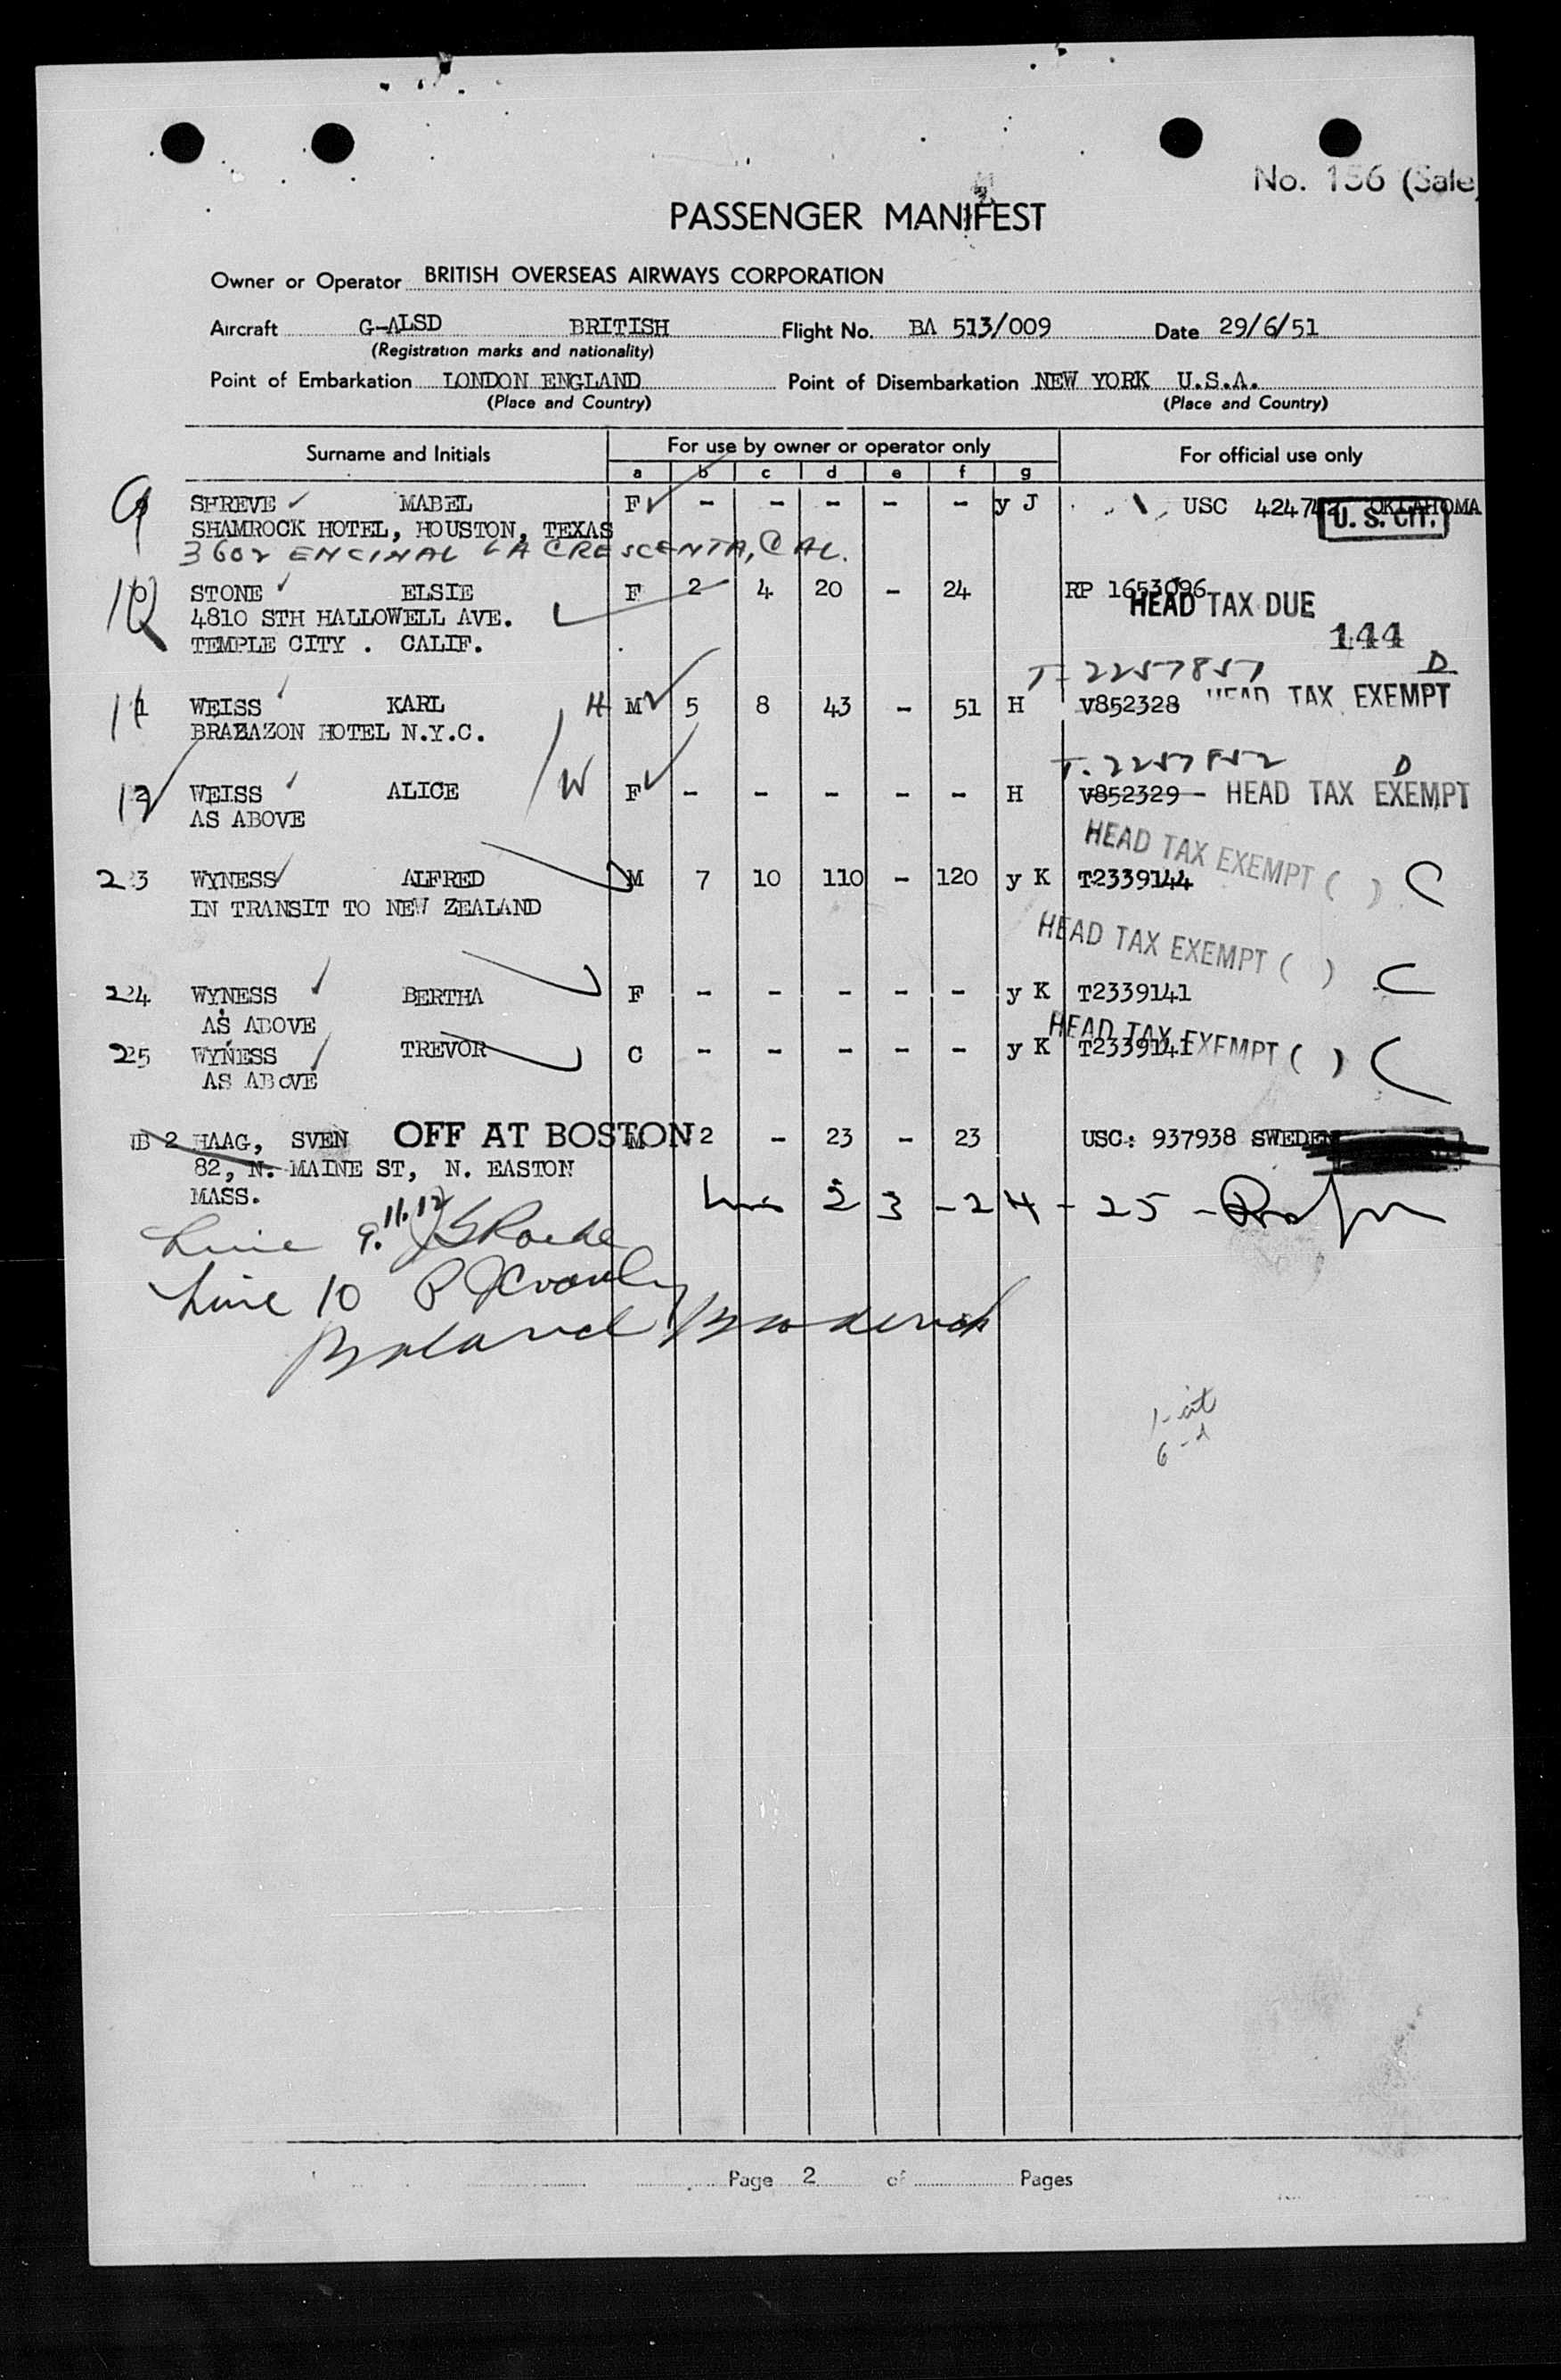 No. 156 (Sale)
PASSENGER MANIFEST
Owner or Operator BRITISH OVERSEAS AIRWAYS CORPORATION
Aircraft G-ALSD BRITISH Flight No. BA 513/009 Date 29/6/51
(Registration marks and nationality)
Point of Embarkation LONDON ENGLAND Point of Disembarkation NEW YORK U.S.A.
(Place and Country) (Place and Country)
Surname and Initials For use by owner or operator only For official use only
a b c d e f g
9 SHREVE MABEL F - - - - - y J USC 424742 OKLAHOMA
U. S. CIT.
SHAMROCK HOTEL, HOUSTON, TEXAS
3602 ENCINAL LA CRESCENTA, CAL.
10 STONE ELSIE F 2 4 20 - 24 RP 1653096
4810 STH HALLOWELL AVE. HEAD TAX DUE
TEMPLE CITY . CALIF. 144
T-2257851 D
11 WEISS KARL H M 5 8 43 - 51 H V852328 HEAD TAX EXEMPT
BRABAZON HOTEL N.Y.C.
T.2257852 D
12 WEISS ALICE W F - - - - - H V852329 - HEAD TAX EXEMPT
AS ABOVE
HEAD TAX EXEMPT ( )
23 WYNESS ALFRED M 7 10 110 - 120 y K T2339144
IN TRANSIT TO NEW ZEALAND
HEAD TAX EXEMPT ( )
24 WYNESS BERTHA F - - - - - y K T2339141
AS ABOVE
HEAD TAX EXEMPT ( )
25 WYNESS TREVOR C - - - - - y K T2339141
AS ABOVE
HB 2 HAAG, SVEN OFF AT BOSTON M 2 - 23 - 23 USC: 937938 SWEDEN
82, N. MAINE ST, N. EASTON
MASS.
23 - 24 - 25 -
Line 9. 11. 12
Line 10
1-cit
6-
Page 2 of Pages